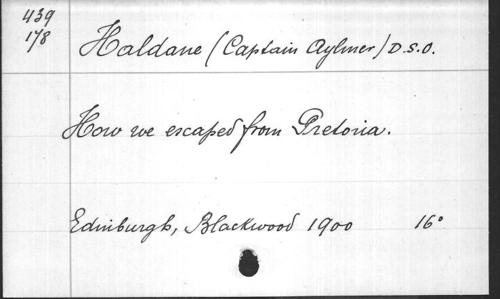 439
178
Haldane (Captain Aylmer) D.S.O.
How we escaped from Pretoria.
Edinburgh, Blackwood 1900 16°